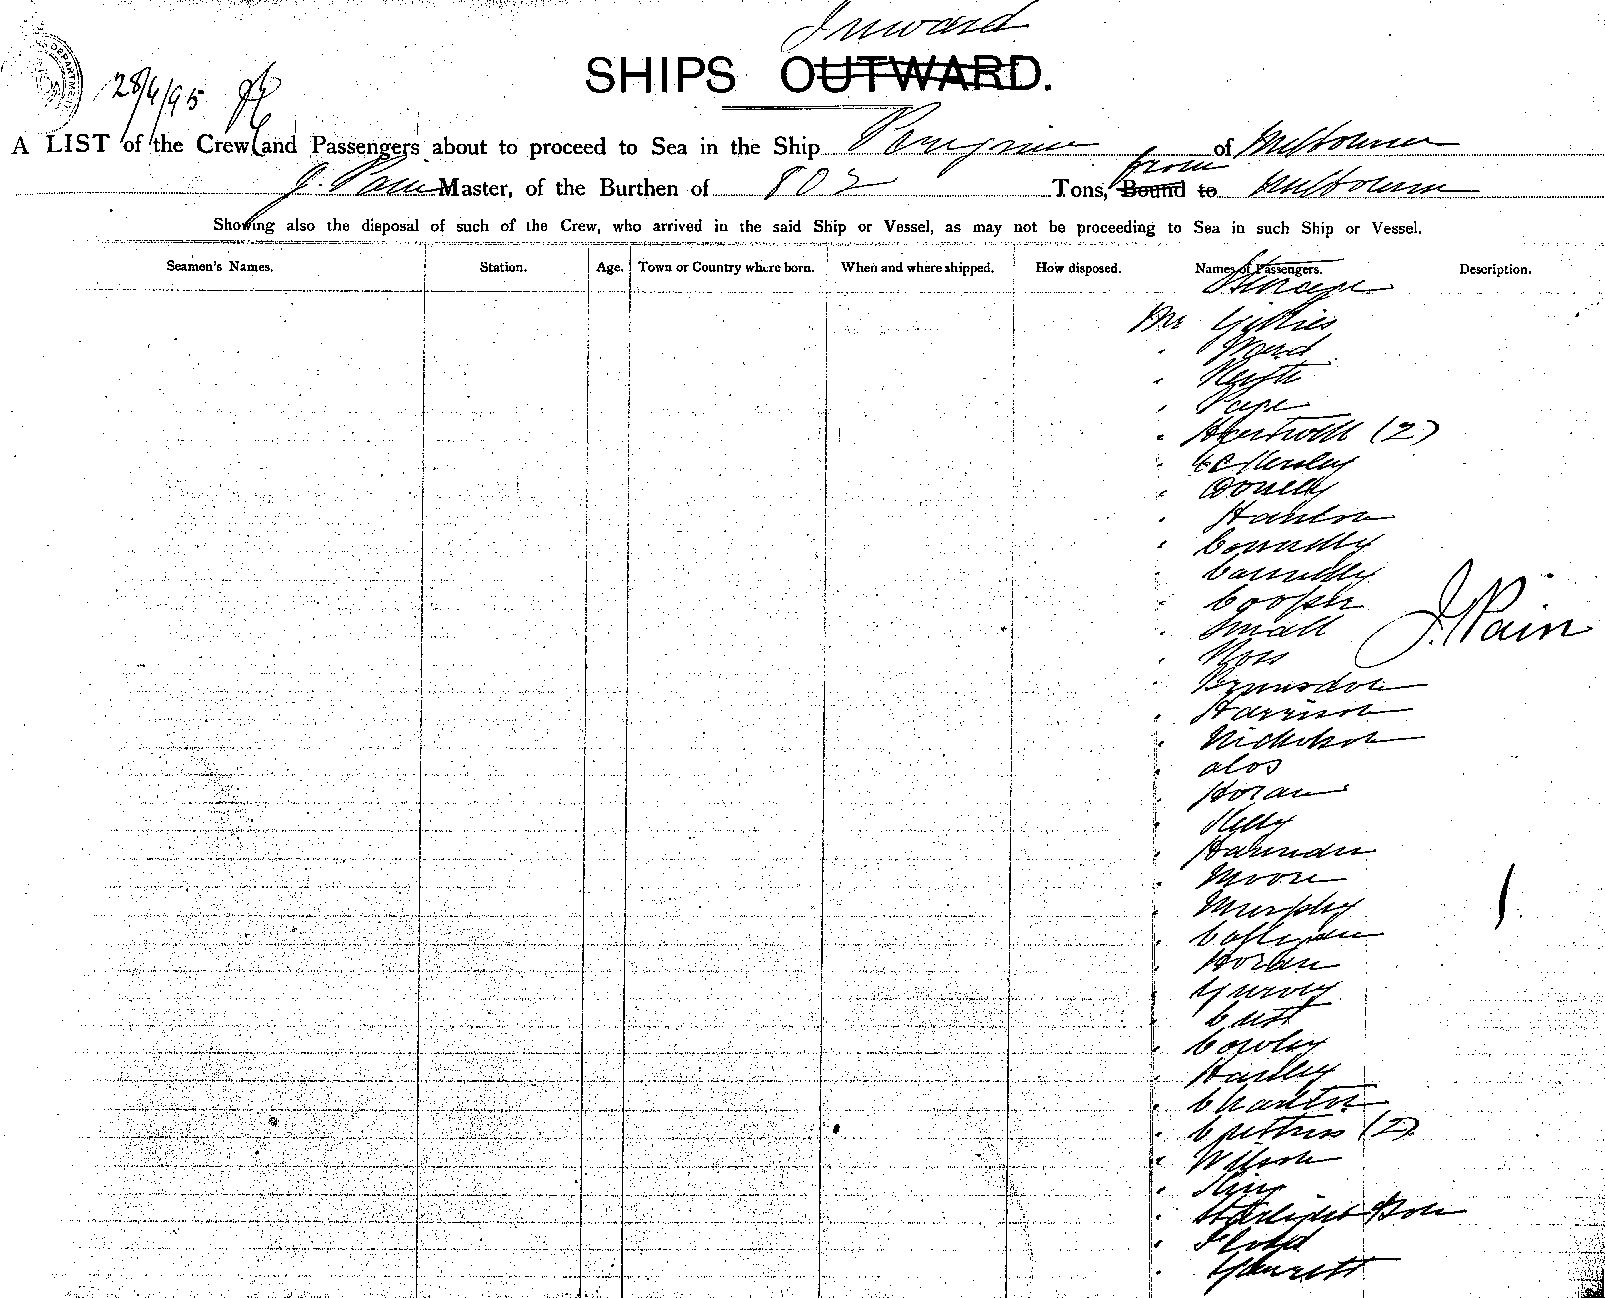 Inward
SHIPS OUTWARD.
28/4/95
A LIST of the Crew and Passengers about to proceed to Sea in the Ship Peregrine of Melbourne
J. Pain Master, of the Burthen of 802 Tons, from Bound to Melbourne
Showing also the disposal of such of the Crew, who arrived in the said Ship or Vessel, as may not be proceeding to Sea in such Ship or Vessel.
Seamen's Names. Station. Age. Town or Country where born. When and where shipped. How disposed. Names of Passengers. Description.
Thorpe
Mr Gillies
" Ward
" Keith
" Pape
" (2)
" Donelly
" Hanlon
" Connelly
" Connelly
" Cooper
" Small
J. Pain
" Ross
" Brunsdon
" Harrison
" Nicholson
" Horan
" Kelly
" Hannan
" Moore
" Murphy
" Horan
" Cowley
" Hartley
" Charlton
" (2)
" Wilson
" King
" Starlight & Son
" Flood
" Garrett